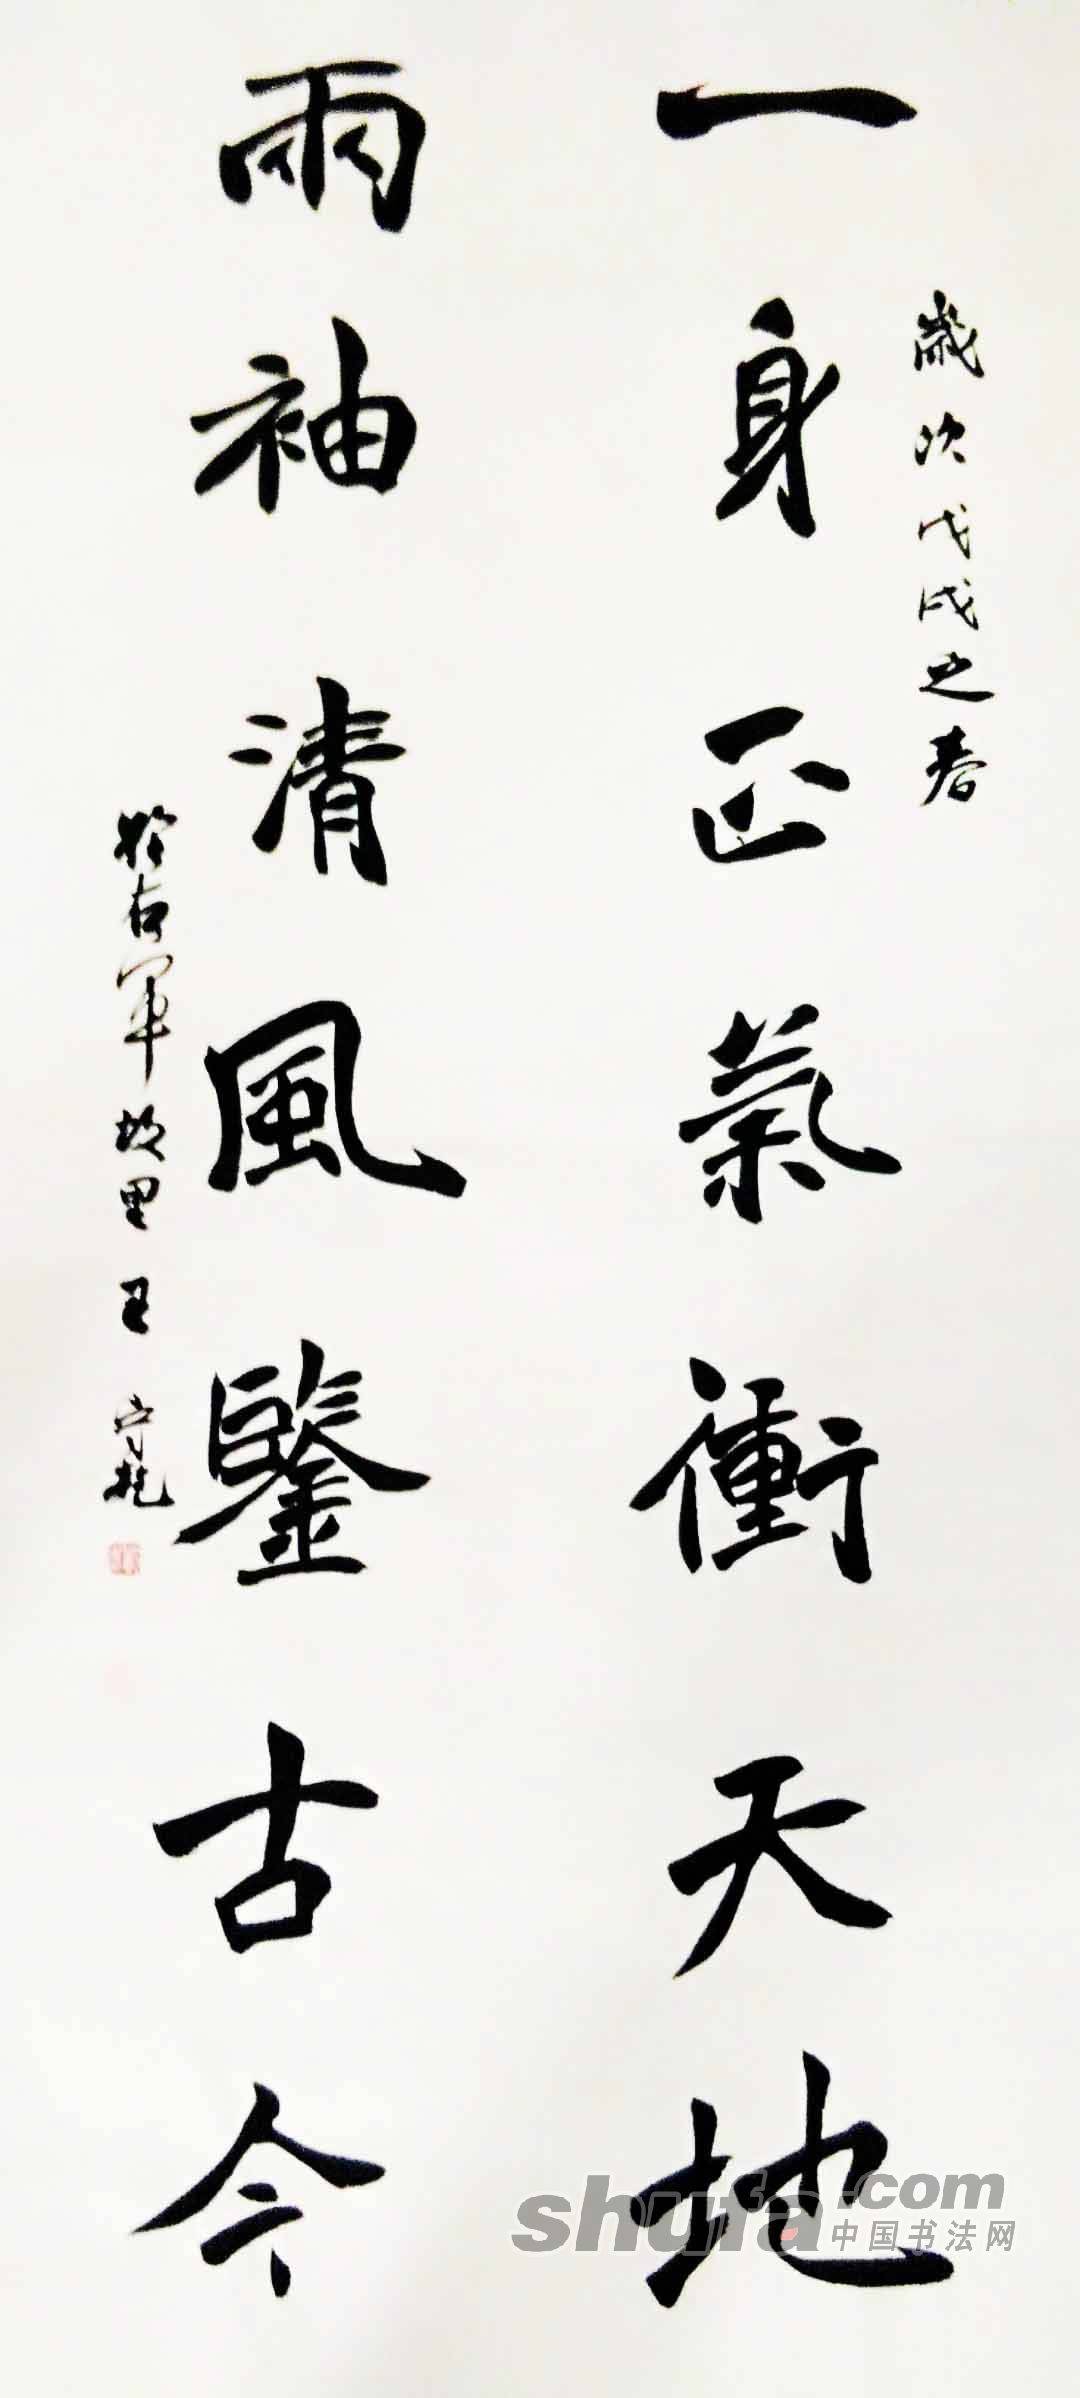 歲次戊戌之春
一身正氣衝天地
兩袖清風鑒古今
於右軍故里王守
shufa.com
中国书法网